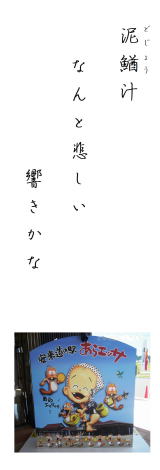 どじょう
泥鰌汁
なんと悲しい
響きかな
安来道の駅 あらエッサ